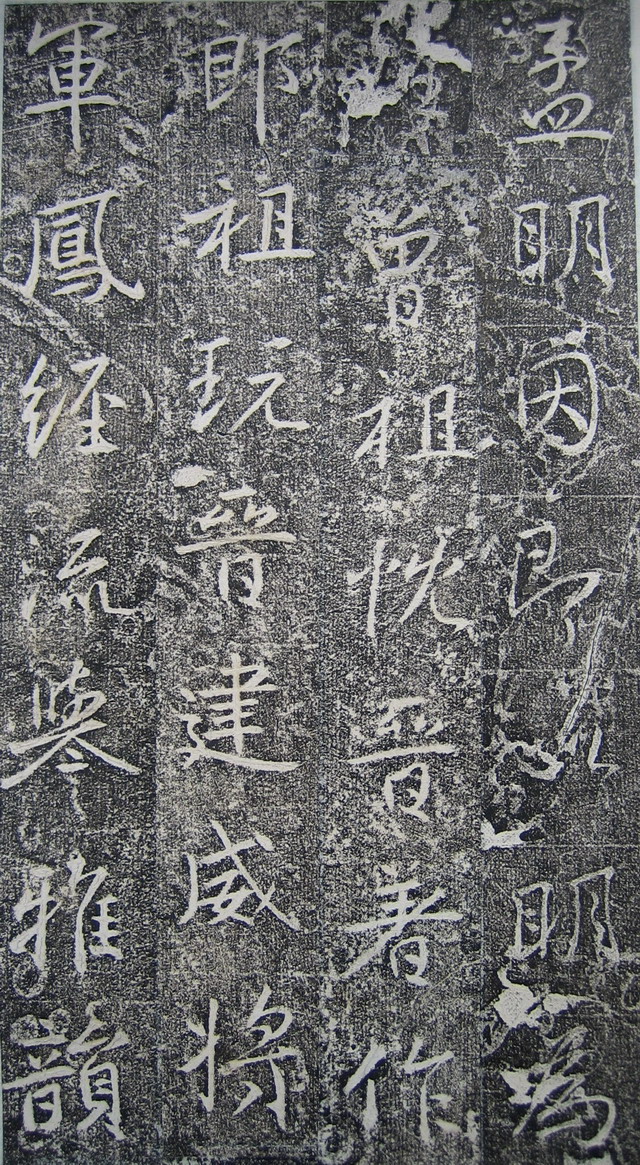 孟明因即以明為
曾祖忱晉著作
郎祖玩晉建威將
軍鳳經流譽雅韻